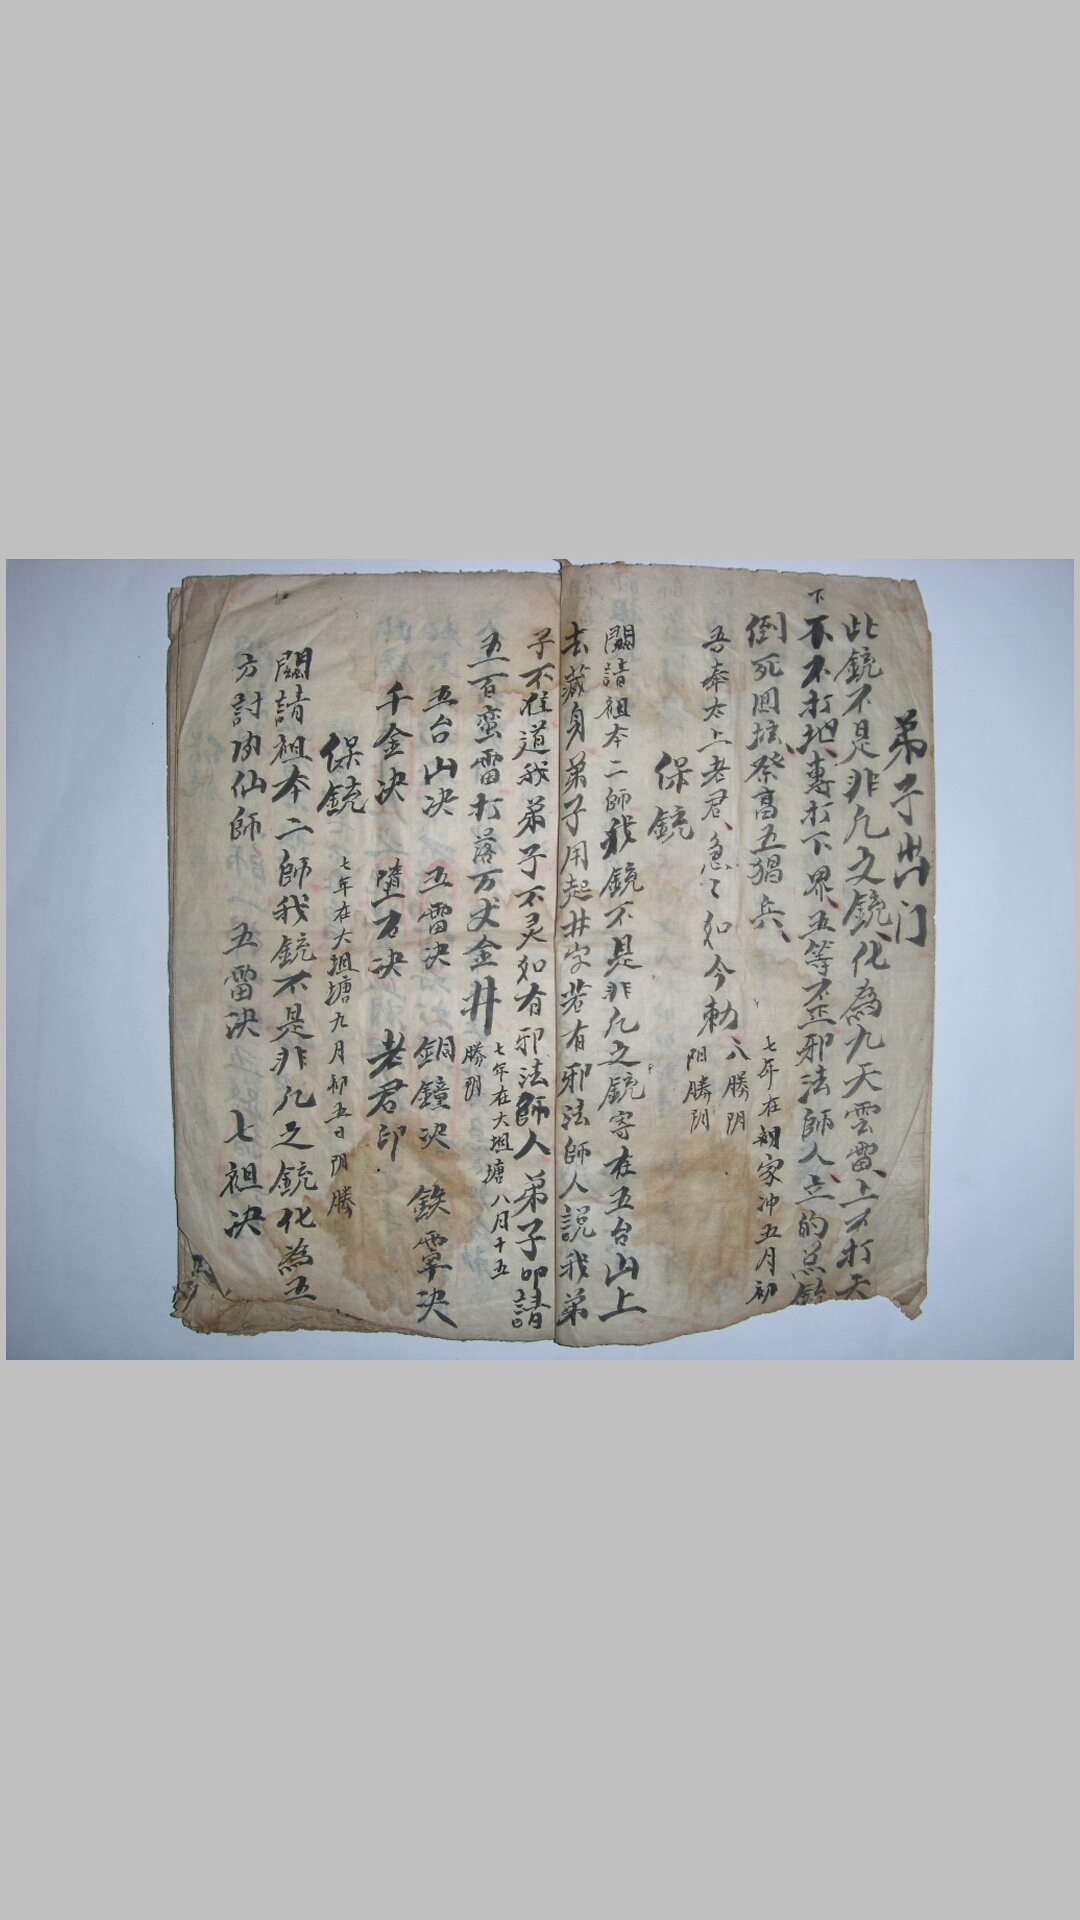 弟子出门
此鏡不是非凡之鏡化為九天雲雷上不打天
下不不打地專打下界五等不正邪法師人立的
倒死回壇祭高五猖兵
七年在胡家冲五月初
八勝阴
吾奉太上老君急ミ如今勅
阳勝阴
保鏡
閣請祖本二師我鏡不是非凡之鏡寄在五台山上
去藏身弟子用起井字若有邪法師人説我弟
子不在道我弟子不灵如有邪法師人弟子叩請
五百蛮雷打落万丈金井
七年在大坦塘八月十五
勝阴
五台山决 五雷决 銅鐘决 鉄覃决
千金决 墮石决 老君印
保鏡
七年在大坦塘九月初五日阴勝
閣請祖本二師我鏡不是非凡之鏡化為五
方討仙師 五雷决 七祖决